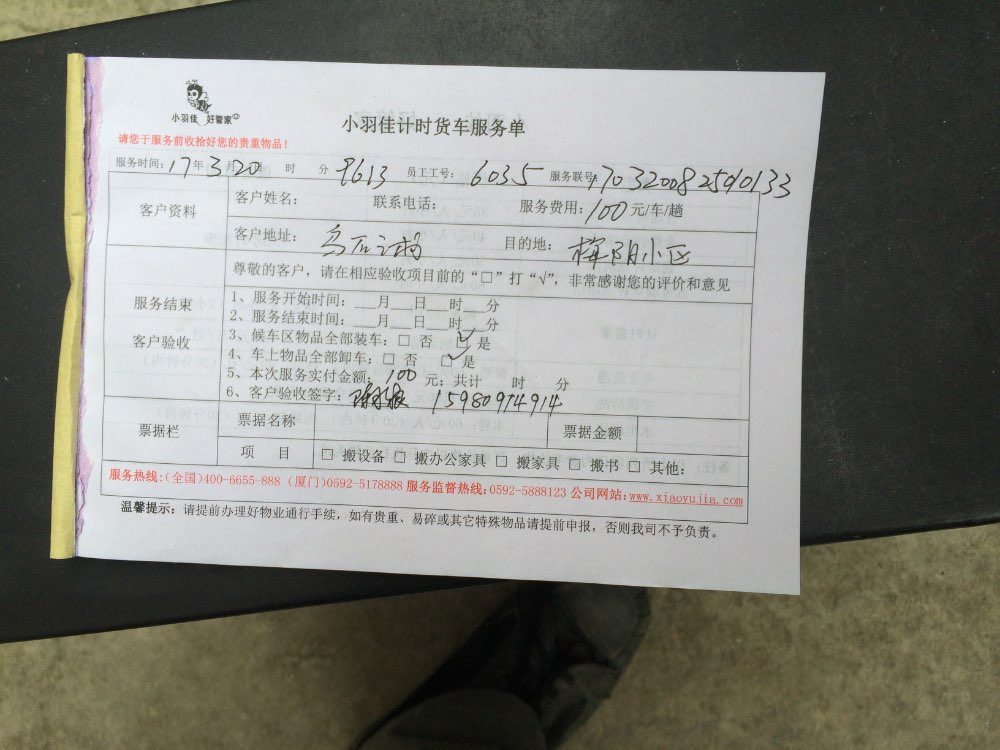 小羽佳 好管家
小羽佳计时货车服务单
请您于服务前收拾好您的贵重物品！
服务时间：17年3月20日 时 分 9613 员工工号： 6035 服务联号：170320082590133
客户资料
客户姓名： 联系电话： 服务费用：100元/车/趟
客户地址： 目的地： 小区
服务结束
客户验收
尊敬的客户，请在相应验收项目前的“□”打“√”，非常感谢您的评价和意见
1、服务开始时间：___月___日___时___分
2、服务结束时间：___月___日___时___分
3、候车区物品全部装车：□ 否 ☑ 是
4、车上物品全部卸车：□ 否 ☑ 是
5、本次服务实付金额：100 元；共计 时 分
6、客户验收签字： 15980914914
票据栏
票据名称 票据金额
项 目 □ 搬设备 □ 搬办公家具 □ 搬家具 □ 搬书 □ 其他：
服务热线：(全国)400-6655-888 (厦门)0592-5178888 服务监督热线：0592-5888123 公司网站：www.xiaoyujia.com
温馨提示：请提前办理好物业通行手续，如有贵重、易碎或其它特殊物品请提前申报，否则我司不予负责。